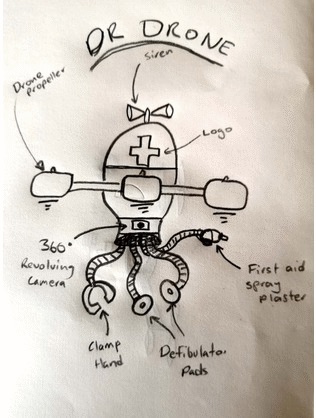 DR DRONE
siren
Drone
propeller
Logo
360°
Revolving
camera
First aid
spray
plaster
Clamp
Hand
Defibulator
Pads